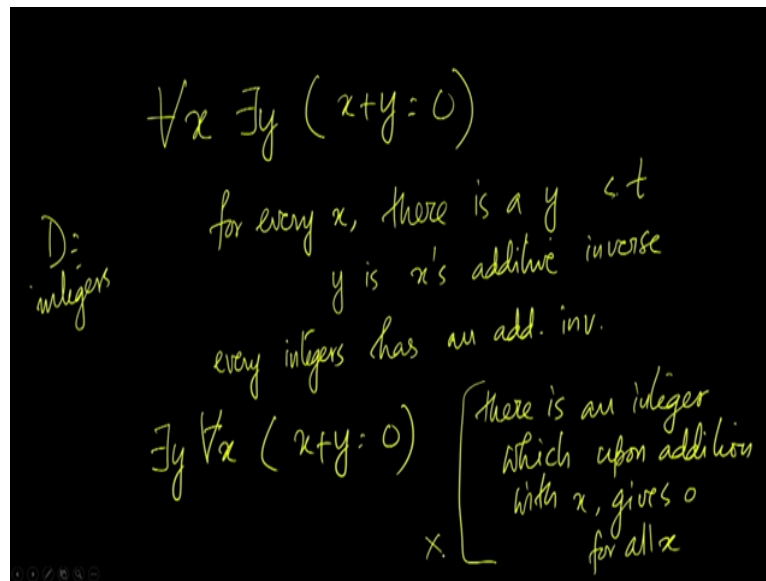 ∀x ∃y ( x+y = 0 )
for every x, there is a y s t
y is x's additive inverse
D =
integers
every integers has an add. inv.
∃y ∀x ( x+y = 0 )
there is an integer
which upon addition
with x, gives 0
for all x
×